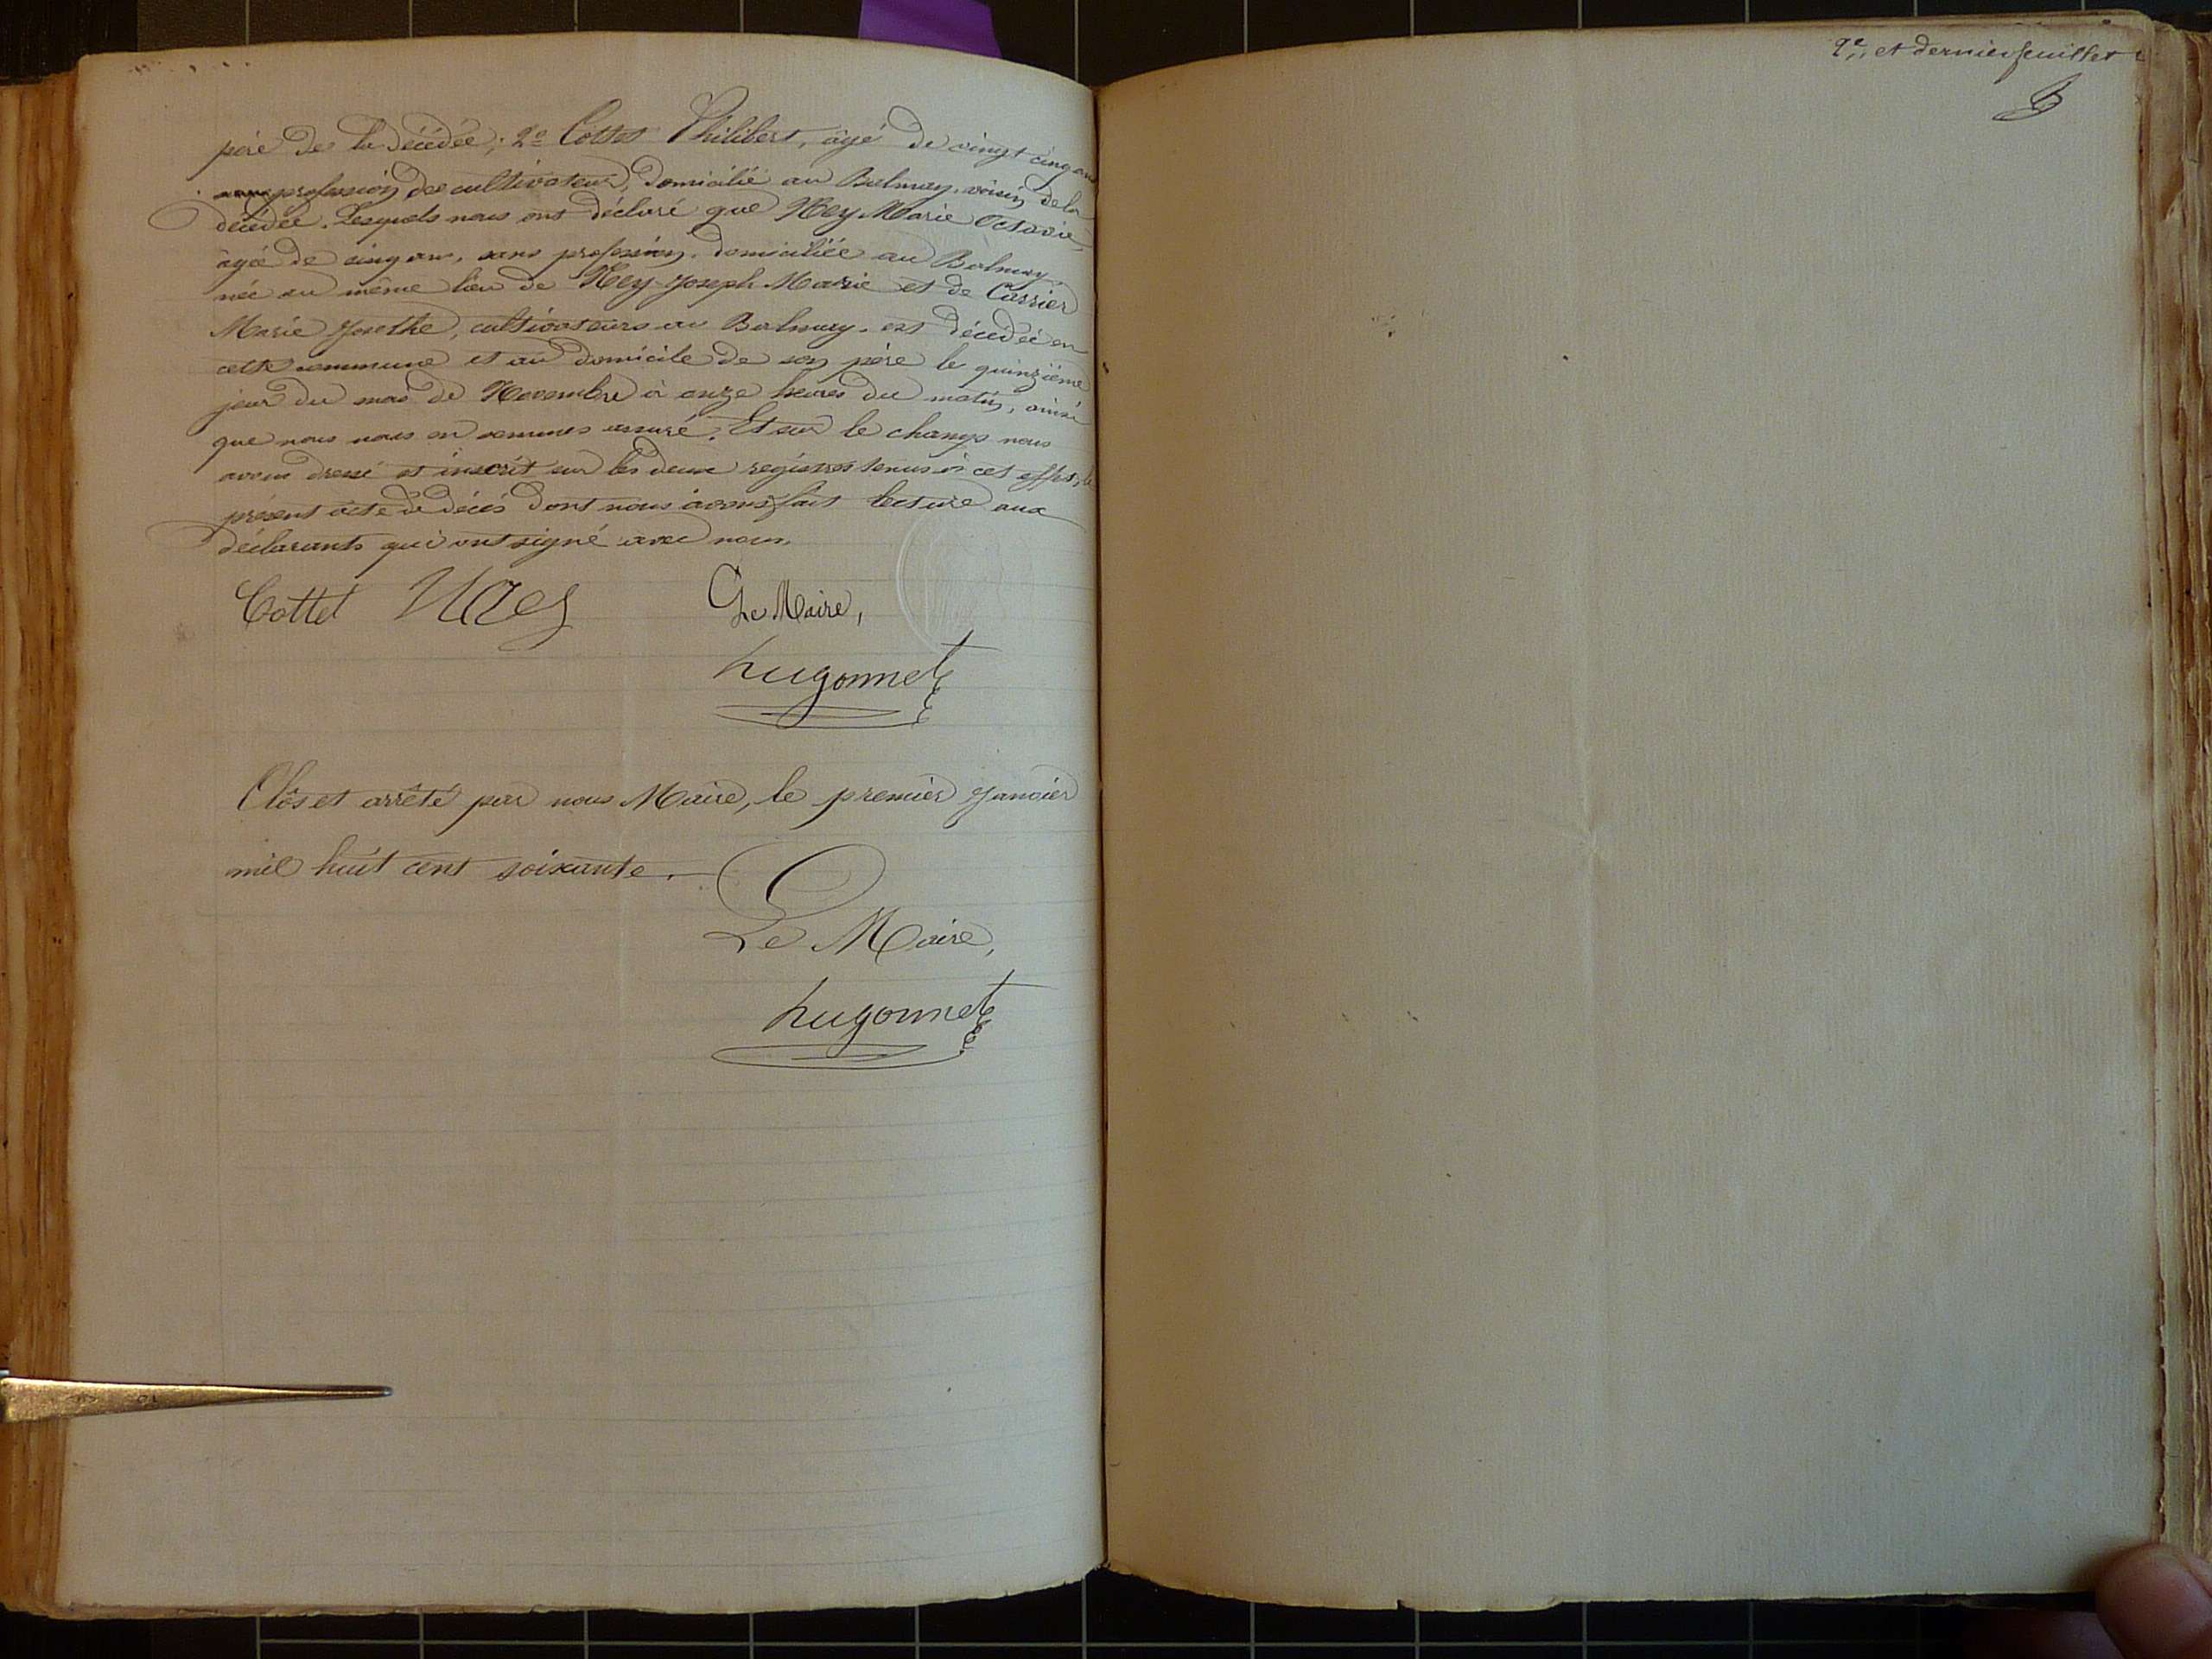 père de la décédée; 2º Cottet Philibert, âgé de vingt cinq ans
profession de cultivateur, domicilié au Balmay, voisin de la
décédée. Lesquels nous ont déclaré que Ney Marie Octavie,
âgée de cinq ans, sans profession, domiciliée au Balmay,
née au même lieu de Ney Joseph Marie et de Carrier
Marie Josethe, cultivateurs au Balmay, est décédée en
cette commune et au domicile de son père le quinzième
jour du mois de Novembre à onze heures du matin, ainsi
que nous nous en sommes assuré. Et sur le champ nous
avons dressé et inscrit sur les deux registres tenus à cet effet, le
présent acte de décès dont nous avons fait lecture aux
déclarants qui ont signé avec nous.
Cottet Ney Le Maire,
hugonnet
Clos et arrêté par nous Maire, le premier Janvier
mil huit cent soixante.
Le Maire,
hugonnet
9e et dernier feuillet